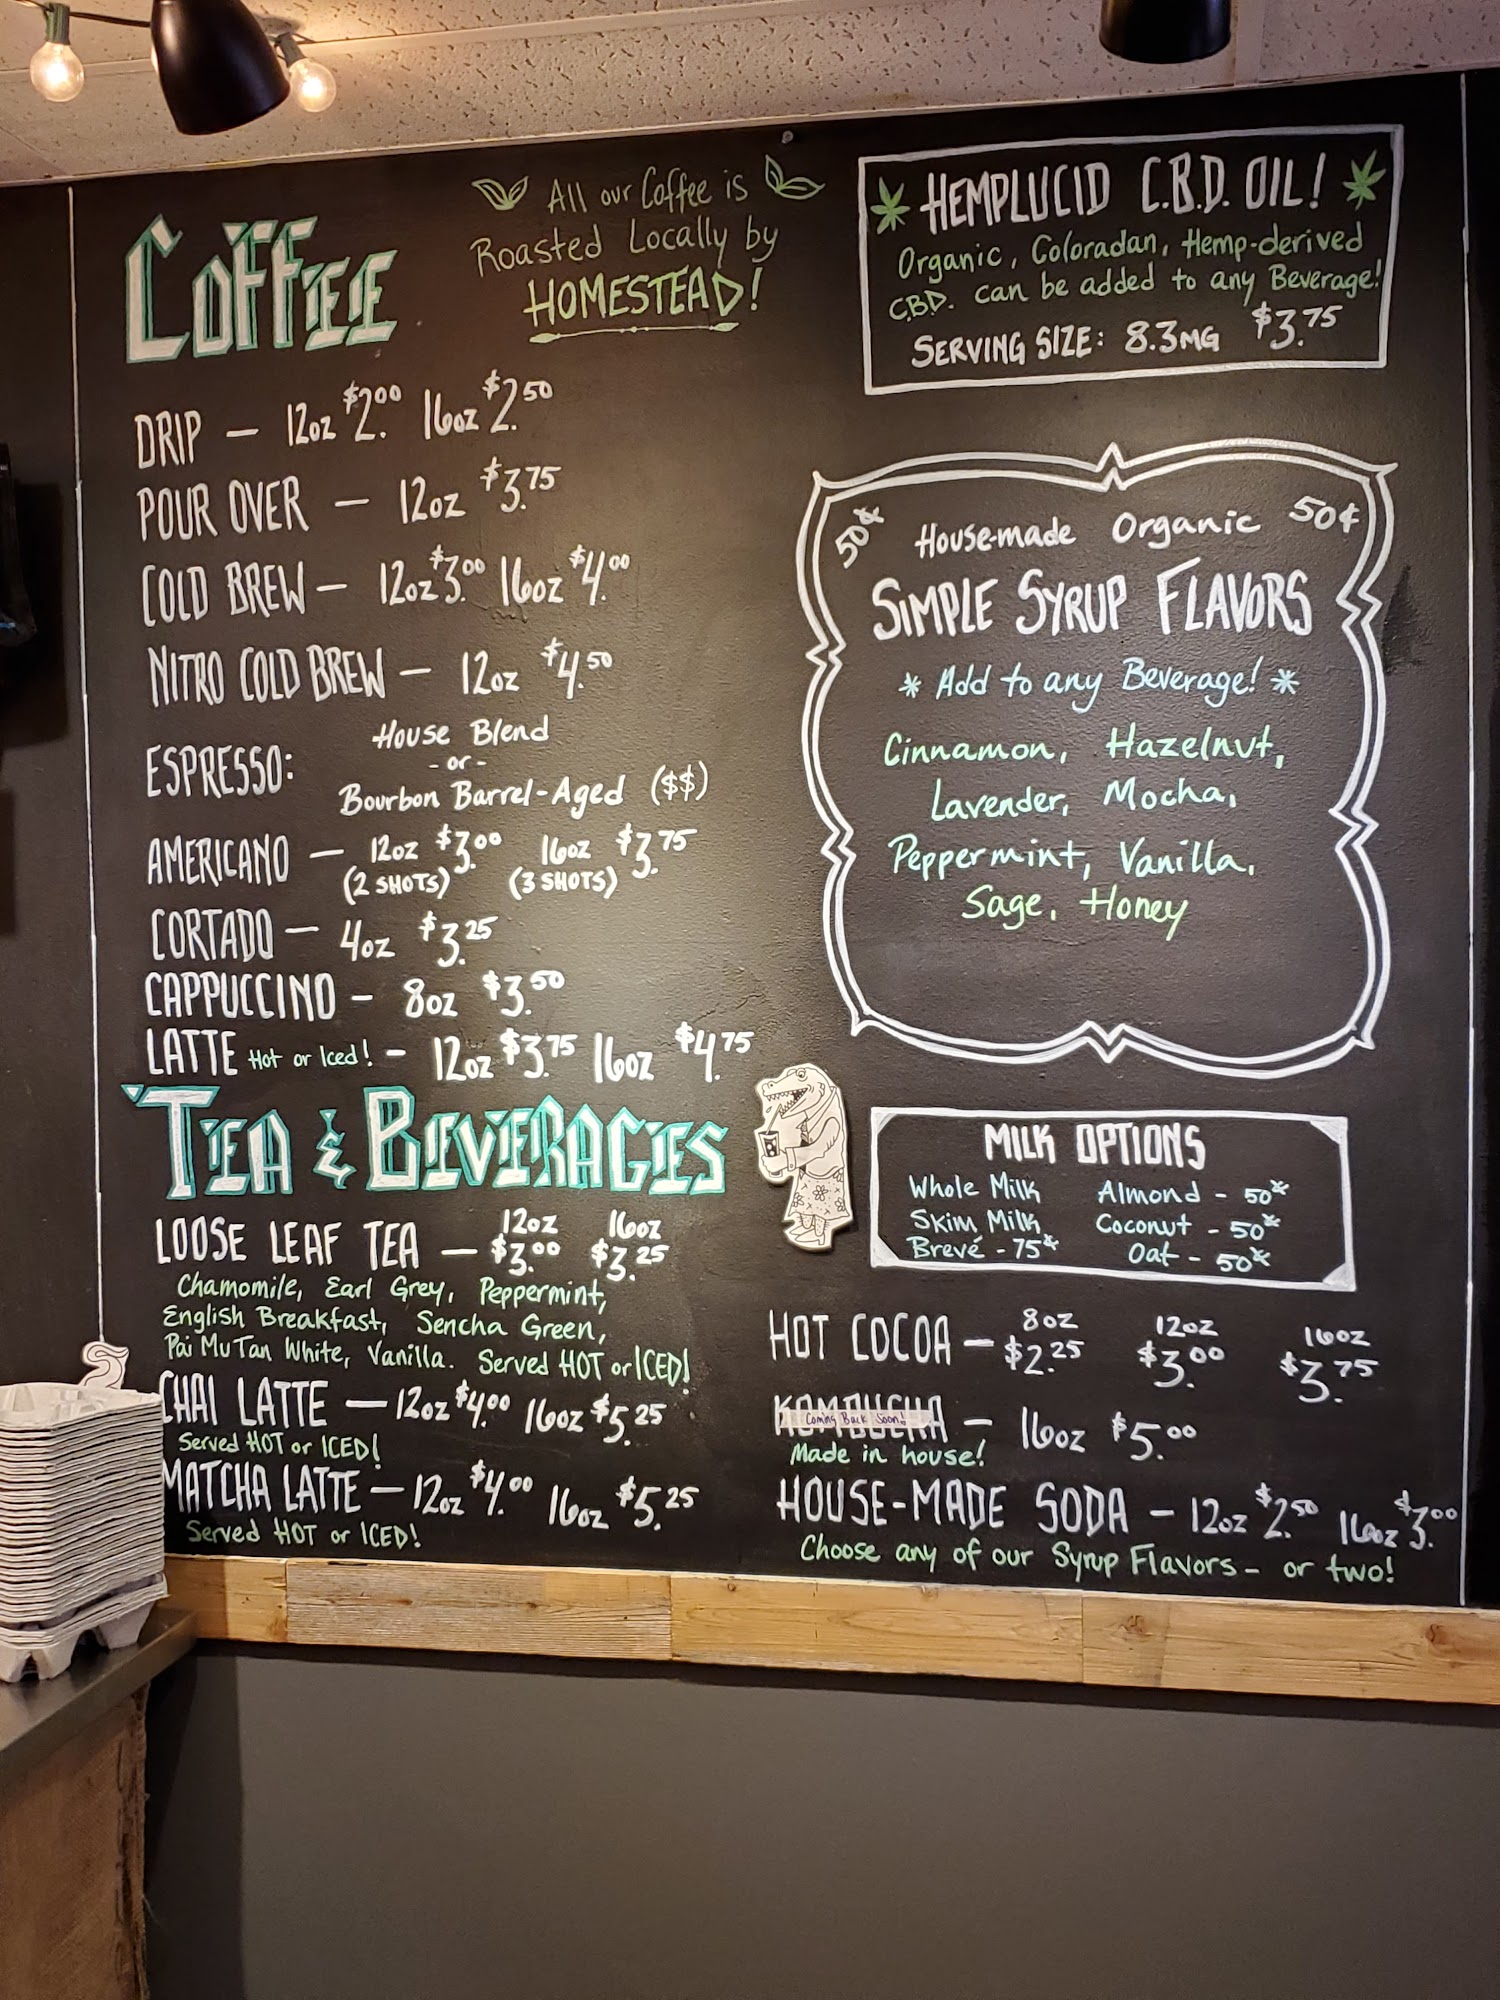 Coffee
All our Coffee is
Roasted Locally by
HOMESTEAD!
DRIP — 12oz $2.00 16oz $2.50
POUR OVER — 12oz $3.75
COLD BREW — 12oz $3.00 16oz $4.00
NITRO COLD BREW — 12oz $4.50
ESPRESSO: House Blend
- or -
Bourbon Barrel-Aged ($$)
AMERICANO — 12oz $3.00 16oz $3.75
(2 SHOTS) (3 SHOTS)
CORTADO — 4oz $3.25
CAPPUCCINO — 8oz $3.50
LATTE Hot or Iced! — 12oz $3.75 16oz $4.75
TEA & BEVERAGES
12oz 16oz
LOOSE LEAF TEA — $3.00 $3.25
Chamomile, Earl Grey, Peppermint,
English Breakfast, Sencha Green,
Pai Mu Tan White, Vanilla. Served HOT or ICED!
CHAI LATTE — 12oz $4.00 16oz $5.25
Served HOT or ICED!
MATCHA LATTE — 12oz $4.00 16oz $5.25
Served HOT or ICED!
HEMPLUCID C.B.D. OIL!
Organic, Coloradan, Hemp-derived
C.B.D. can be added to any Beverage!
SERVING SIZE: 8.3MG $3.75
50¢ House-made Organic 50¢
SIMPLE SYRUP FLAVORS
* Add to any Beverage! *
Cinnamon, Hazelnut,
Lavender, Mocha,
Peppermint, Vanilla,
Sage, Honey
MILK OPTIONS
Whole Milk Almond - 50¢
Skim Milk Coconut - 50¢
Brevé - 75¢ Oat - 50¢
8oz 12oz 16oz
HOT COCOA — $2.25 $3.00 $3.75
KOMBUCHA — 16oz $5.00
Coming Back Soon!
Made in house!
HOUSE-MADE SODA — 12oz $2.50 16oz $3.00
Choose any of our Syrup Flavors - or two!